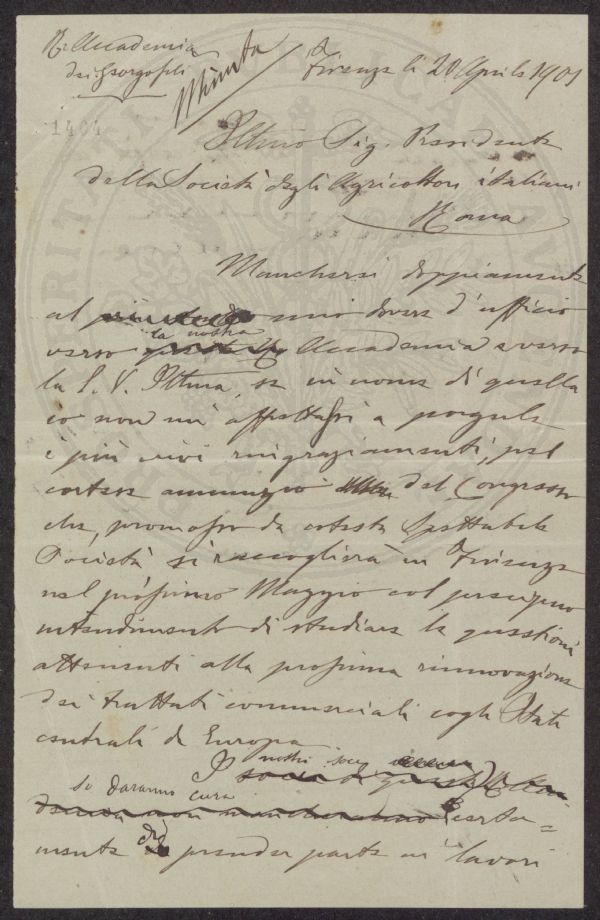 R. Accademia
dei Georgofili
Minuta
Firenze li 20 Aprile 1901
1404
Illmo Sig. Presidente
della Società degli Agricoltori italiani
Roma
Mancherei doppiamente
al mio dovere d'ufficio
verso la nostra Accademia e verso
la S. V. Illma, se in nome di quella
io non mi affrettassi a porgerle
i più vivi ringraziamenti, pel
cortese annunzio del Congresso
che, promosso da cotesta Spettabile
Società si raccoglierà in Firenze
nel prossimo Maggio col
intendimento di studiare le questioni
attenenti alla prossima rinnovazione
dei trattati commerciali cogli Stati
centrali di Europa
I nostri soci
si daranno cura certa=
mente di prender parte ai lavori